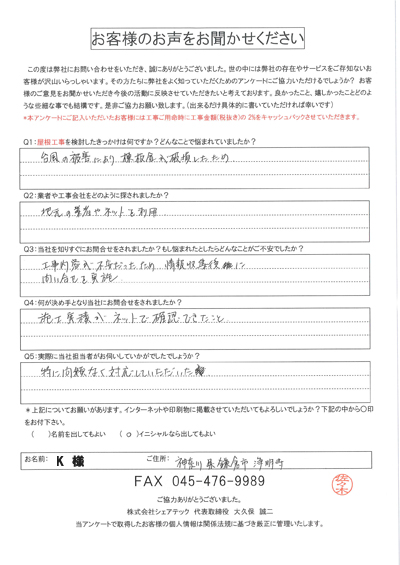 お客様のお声をお聞かせください
この度は弊社にお問い合わせをいただき、誠にありがとうございました。世の中には弊社の存在やサービスをご存知ないお
客様が沢山いらっしゃいます。その方たちに弊社をよく知っていただくためのアンケートにご協力いただけるでしょうか？ お客
様のご意見をお聞かせいただき今後の活動に反映させていただきたいと考えております。良かったこと、嬉しかったことどのよ
うな些細な事でも結構です。是非ご協力お願い致します。（出来るだけ具体的に書いていただければ幸いです）
*本アンケートにご記入いただいたお客様には工事ご用命時に工事金額(税抜き)の 2%をキャッシュバックさせていただきます。
Q1：屋根工事を検討したきっかけは何ですか？どんなことで悩まれていましたか？
台風の被害により 棟板金が破損したため
Q2：業者や工事会社をどのように探されましたか？
地元の業者やネットを利用
Q3：当社を知りすぐにお問合せをされましたか？もし悩まれたとしたらどんなことがご不安でしたか？
工事内容が不安だったため 情報収集後に
問い合せを実施
Q4：何が決め手となり当社にお問合せをされましたか？
施工実績がネットで確認できたこと
Q5：実際に当社担当者がお伺いしていかがでしたでしょうか？
特に問題なく対応していただいた
＊上記についてお願いがあります。インターネットや印刷物に掲載させていただいてもよろしいでしょうか？下記の中から〇印
をお付け下さい。
（ ）名前を出してもよい （ o ）イニシャルなら出してもよい
お名前： K 様 ご住所： 神奈川県鎌倉市浄明寺
佐々木
FAX 045-476-9989
ご協力ありがとうございました。
株式会社シェアテック 代表取締役 大久保 誠二
当アンケートで取得したお客様の個人情報は関係法規に基づき厳正に管理いたします。